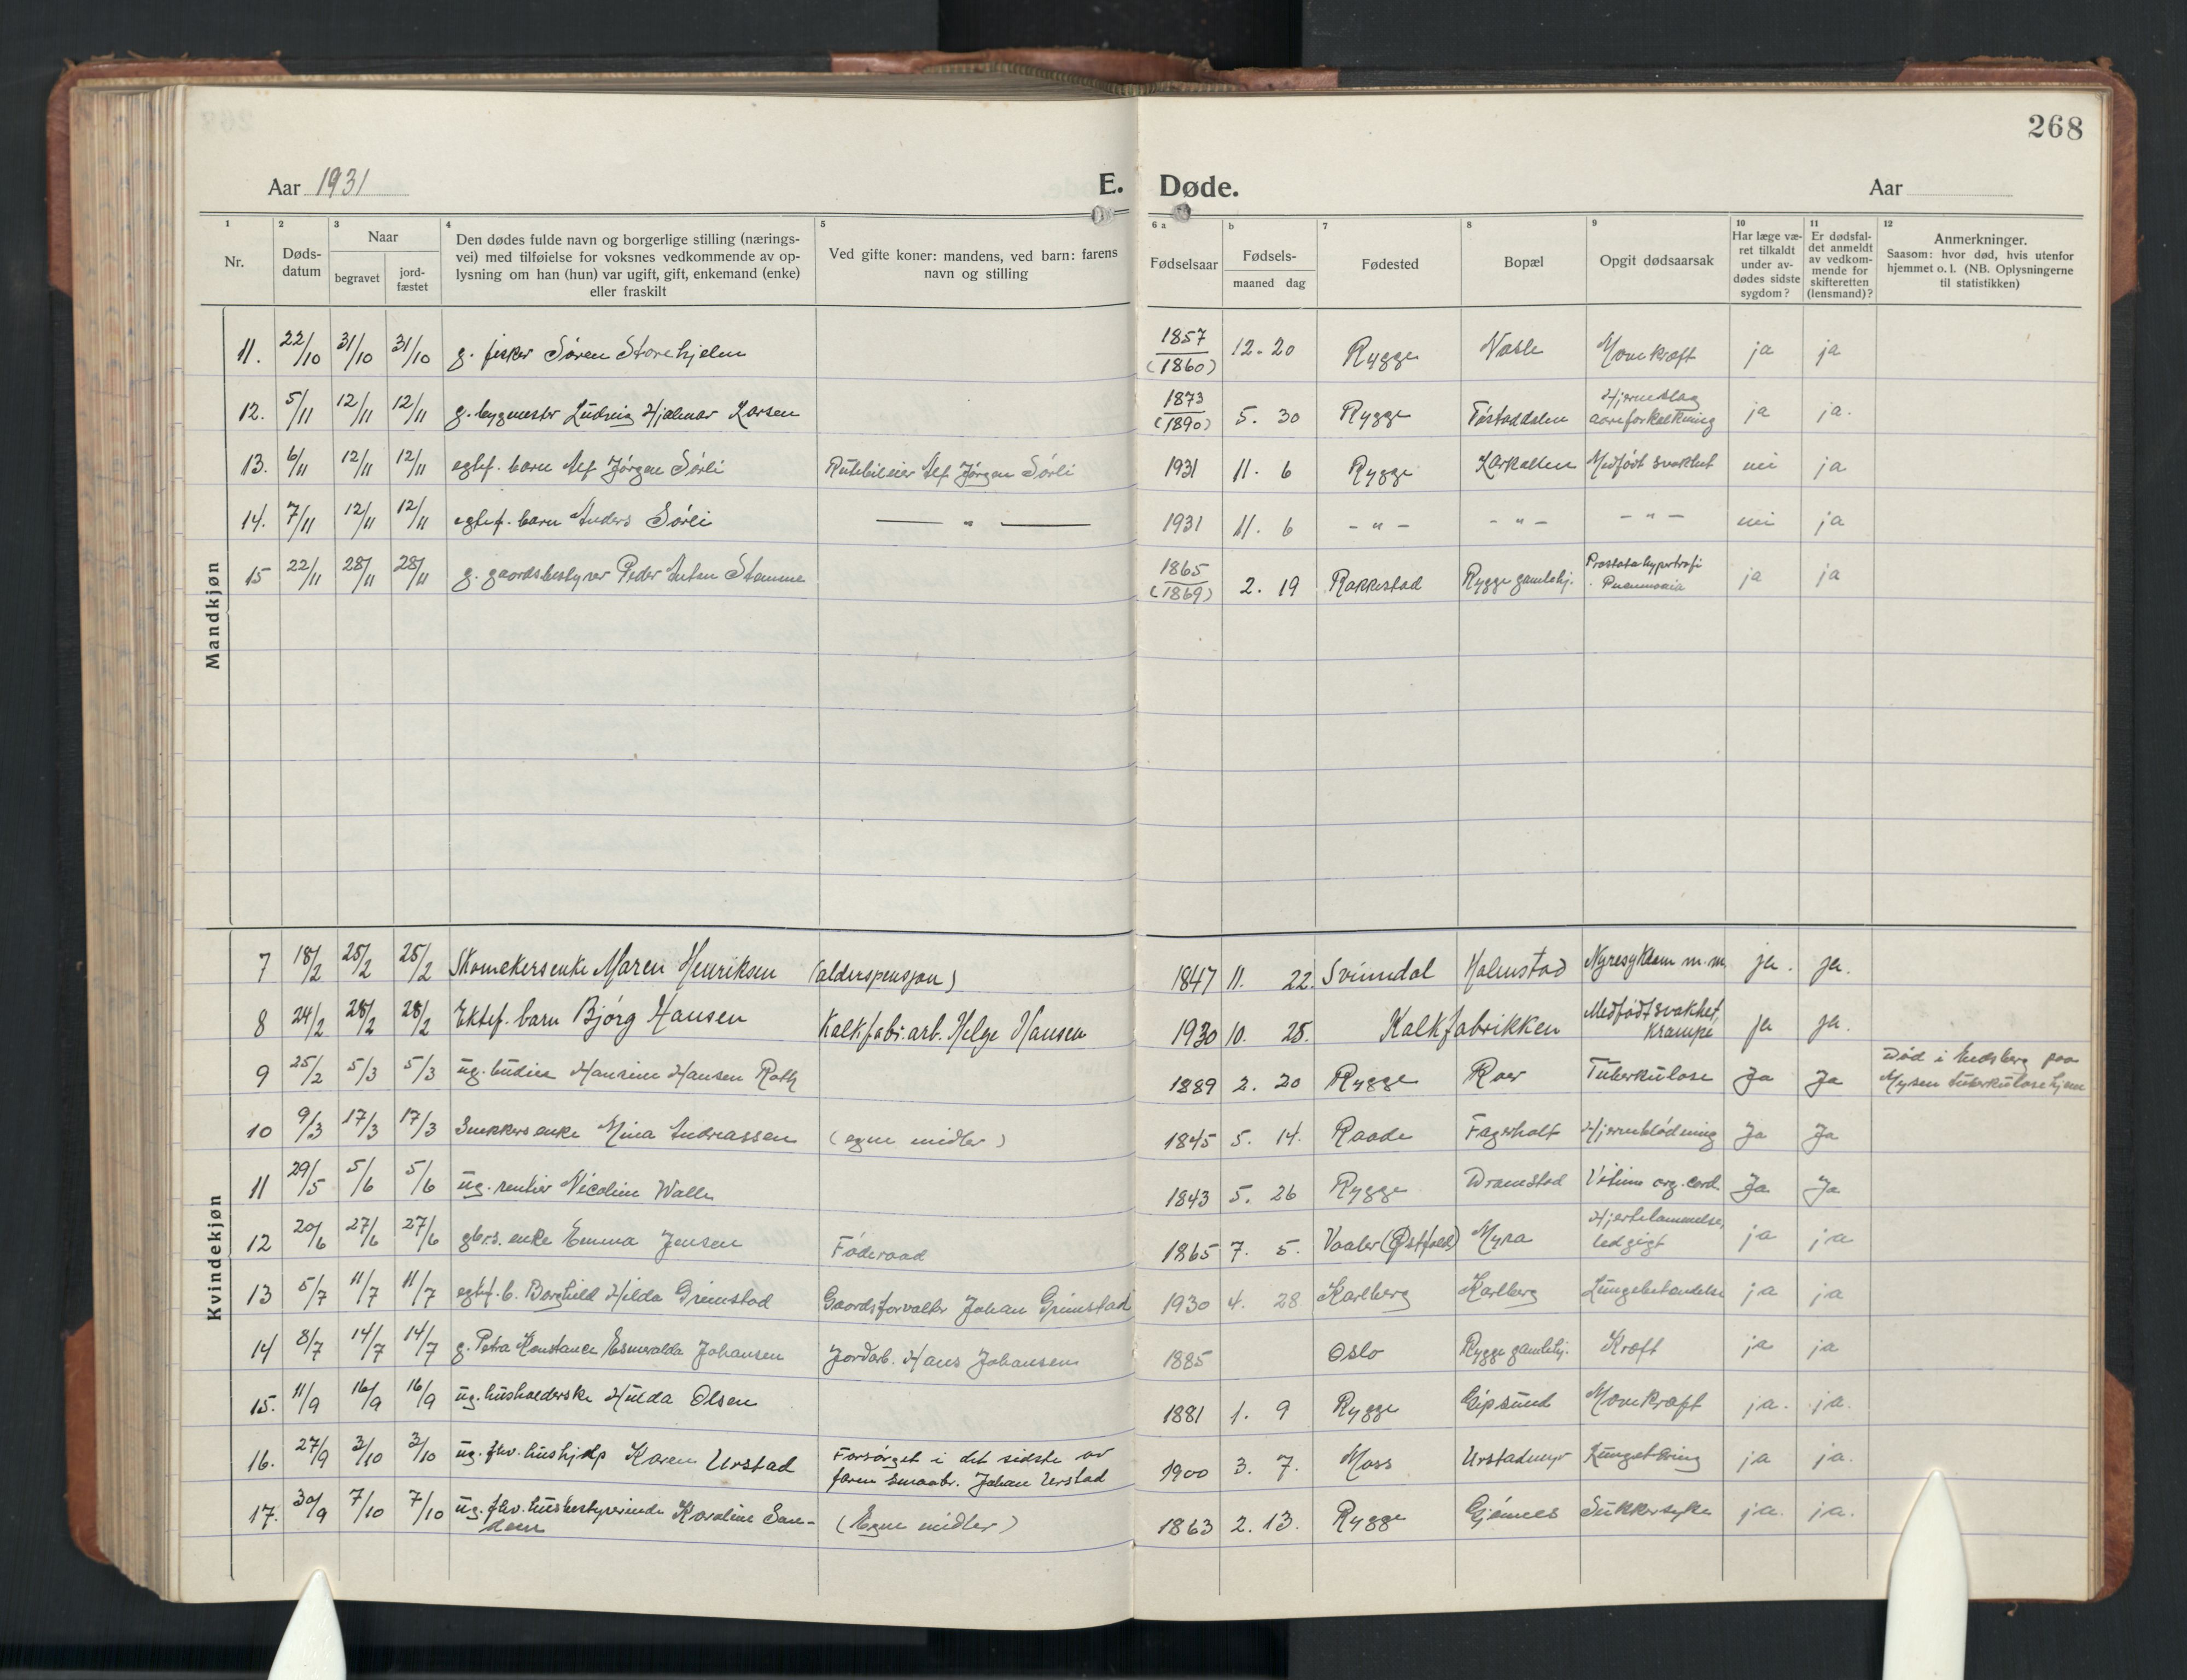 268
Aar 1931 E. Døde. Aar
1 2 3 4 5 6 a b 7 8 9 10 11 12
Nr. Døds-datum Naar begravet jord-fæstet Den dødes fulde navn og borgerlige stilling (nærings-vei) med tilføielse for voksnes vedkommende av op-lysning om han (hun) var ugift, gift, enkemand (enke) eller fraskilt Ved gifte koner: mandens, ved barn: farens navn og stilling Fødselsaar Fødsels-maaned dag Fødested Bopæl Opgit dødsaarsak Har læge væ-ret tilkaldt under av-dødes sidste sygdom? Er dødsfal-det anmeldt av vedkom-mende for skifteretten (lensmand)? Anmerkninger. Saasom: hvor død, hvis utenfor hjemmet o. l. (NB. Oplysningerne til statistikken)
Mandkjøn
11. 22/10 31/10 31/10 g. fisker Søren Storehjelen 1857 (1860) 12. 20 Rygge Vasle Mavekræft ja ja
12. 5/11 12/11 12/11 g. bygmester Ludvig Hjalmar Larsen 1873 (1890) 5. 30 Rygge Tøstaddalen Hjerneslag aareforkalkning ja ja.
13. 6/11 12/11 12/11 egtef. barn Alf Jørgen Sørli Rutebileier Alf Jørgen Sørli 1931 11. 6 Rygge Larkollen Medfødt svakhet nei ja
14. 7/11 12/11 12/11 egtef. barn Anders Sørli — " — 1931 11. 6 - " - - " - - " - nei ja
15 22/11 28/11 28/11 g. gaardsbestyrer Peder Anton Stamme 1865 (1869) 2. 19 Rakkestad Rygge gamlehj. Prostatahypertrofi. Pneumonia ja ja
Kvindekjøn
7 18/2 25/2 25/2 Skomakersenke Maren Henriksen (alderspensjon) 1847 11. 22. Svinndal Halmstad Nyresykdom m.m. ja. ja.
8 24/2 28/2 28/2 Ektef. barn Bjørg Hansen Kalkfabr.arb. Helge Hansen 1930 10. 25. Kalkfabrikken Medfødt svakhet, krampe ja ja.
9 25/2 5/3 5/3 ug. budeie Hansine Hansen Roth 1889 2. 20 Rygge Roer Tuberkulose Ja Ja Død i Eidsberg paa Mysen tuberkulosehjem
10 9/3 17/3 17/3 Snekkersenke Mina Andreassen (egne midler) 1845 5. 14. Raade Fagerholt Hjerneblødning Ja Ja
11 29/5 5/6 5/6 ug. rentier Nicoline Walle 1843 5. 26 Rygge Dramstad Vitium org. cord. Ja Ja
12 20/6 27/6 27/6 gbrs. enke Emma Jensen Føderaad 1865 7. 5. Vaaler (Østfold) Myra Hjertelammelse, ledgigt ja ja
13 5/7 11/7 11/7 egtef. b. Borghild Hilda Grimstad Gaardsforvalter Johan Grimstad 1930 4. 28 Karlberg Karlberg Lungebetændelse ja ja
14 8/7 14/7 14/7 g. Petra Konstance Esmeralda Johansen Jordarb. Hans Johansen 1885 Oslo Rygge gamlehj. Kræft ja ja
15. 11/9 16/9 16/9 ug. husholderske Hulda Olsen 1881 1. 9 Rygge Gipsund Mavekræft ja. ja.
16. 27/9 3/10 3/10 ug. fhv. hushjelp Karen Urstad Forsørget i det sidste av faren smaabr. Johan Urstad 1900 3. 7. Moss Urstadmyr Lungetæring ja ja.
17. 30/9 7/10 7/10 ug. fhv. husbestyrerinde Karoline San-dem (Egne midler) 1863 2. 13. Rygge Gjennes Sukkersyke ja. ja.